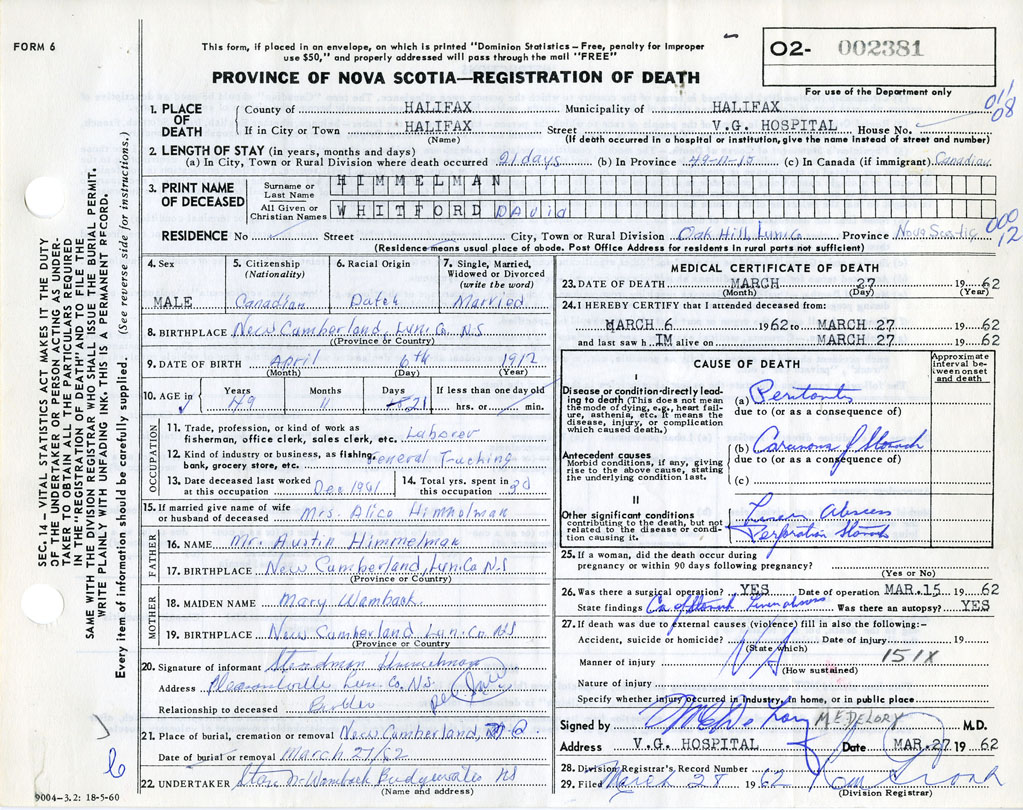 FORM 6
This form, if placed in an envelope, on which is printed "Dominion Statistics – Free, penalty for improper
use $50," and properly addressed will pass through the mail "FREE"
PROVINCE OF NOVA SCOTIA—REGISTRATION OF DEATH
O2- 002381
For use of the Department only
011
08
SEC. 14 – VITAL STATISTICS ACT MAKES IT THE DUTY
OF THE UNDERTAKER OR PERSON ACTING AS UNDER-
TAKER TO OBTAIN ALL THE PARTICULARS REQUIRED
IN THE "REGISTRATION OF DEATH" AND TO FILE THE
SAME WITH THE DIVISION REGISTRAR WHO SHALL ISSUE THE BURIAL PERMIT.
WRITE PLAINLY WITH UNFADING INK. THIS IS A PERMANENT RECORD.
Every item of information should be carefully supplied. (See reverse side for instructions.)
1. PLACE OF DEATH
County of HALIFAX Municipality of HALIFAX
If in City or Town HALIFAX Street V.G. HOSPITAL House No.
(Name) (If death occurred in a hospital or institution, give the name instead of street and number)
2. LENGTH OF STAY (in years, months and days)
(a) In City, Town or Rural Division where death occurred 21 days (b) In Province 49-11-15 (c) In Canada (if immigrant) Canadian
3. PRINT NAME OF DECEASED
Surname or Last Name HIMMELMAN
All Given or Christian Names WHITFORD David
RESIDENCE No Street City, Town or Rural Division Oak Hill, Lun. Co Province Nova Scotia
000
12
(Residence means usual place of abode. Post Office Address for residents in rural parts not sufficient)
4. Sex MALE
5. Citizenship (Nationality) Canadian
6. Racial Origin Dutch
7. Single, Married, Widowed or Divorced (write the word) Married
8. BIRTHPLACE New Cumberland, Lun. Co. N.S
(Province or Country)
9. DATE OF BIRTH April 6th 1912
(Month) (Day) (Year)
10. AGE in Years 49 Months 11 Days 21 If less than one day old hrs. or min.
OCCUPATION
11. Trade, profession or kind of work as
fisherman, office clerk, sales clerk, etc. Laborer
12. Kind of industry or business, as fishing,
bank, grocery store, etc. General Trucking
13. Date deceased last worked
at this occupation Dec 1961
14. Total yrs. spent in
this occupation 30
15. If married give name of wife
or husband of deceased Mrs. Alice Himmelman
FATHER
16. NAME Mr. Austin Himmelman
17. BIRTHPLACE New Cumberland, Lun. Co N.S
(Province or Country)
MOTHER
18. MAIDEN NAME Mary Wamback
19. BIRTHPLACE New Cumberland, Lun. Co. NS
(Province or Country)
20. Signature of informant Steadman Himmelman
Address Pleasantville Lun. Co. N.S.
Relationship to deceased Brother per
21. Place of burial, cremation or removal New Cumberland,
Date of burial or removal March 27/62
22. UNDERTAKER Wamback Bridgewater NS
(Name and address)
6
9004–3.2: 18-5-60
MEDICAL CERTIFICATE OF DEATH
23. DATE OF DEATH MARCH 27 19 62
(Month) (Day) (Year)
24. I HEREBY CERTIFY that I attended deceased from:
MARCH 6 1962 to MARCH 27 19 62
and last saw h IM alive on MARCH 27 19 62
CAUSE OF DEATH
Approximate interval between onset and death
I
Disease or condition directly lead-
ing to death (This does not mean
the mode of dying, e.g., heart fail-
ure, asthenia, etc. It means the
disease, injury, or complication
which caused death.)
(a) Peritonitis
due to (or as a consequence of)
Antecedent causes
Morbid conditions, if any, giving
rise to the above cause, stating
the underlying condition last.
(b) Carcinoma of Stomach
due to (or as a consequence of)
(c)
II
Other significant conditions
contributing to the death, but not
related to the disease or condi-
tion causing it.
Abscess
Perforation Stomach
25. If a woman, did the death occur during
pregnancy or within 90 days following pregnancy?
(Yes or No)
26. Was there a surgical operation? YES Date of operation MAR. 15 19 62
State findings Ca of Stomach Was there an autopsy? YES
27. If death was due to external causes (violence) fill in also the following:–
Accident, suicide or homicide? Date of injury 19
(State which)
NA
151X
Manner of injury
(How sustained)
Nature of injury
Specify whether injury occurred in industry, in home, or in public place
Signed by M.E. DELORY M.D.
Address V.G. HOSPITAL Date MAR. 27 19 62
28. Division Registrar's Record Number
29. Filed March 28 19 62
(Division Registrar)